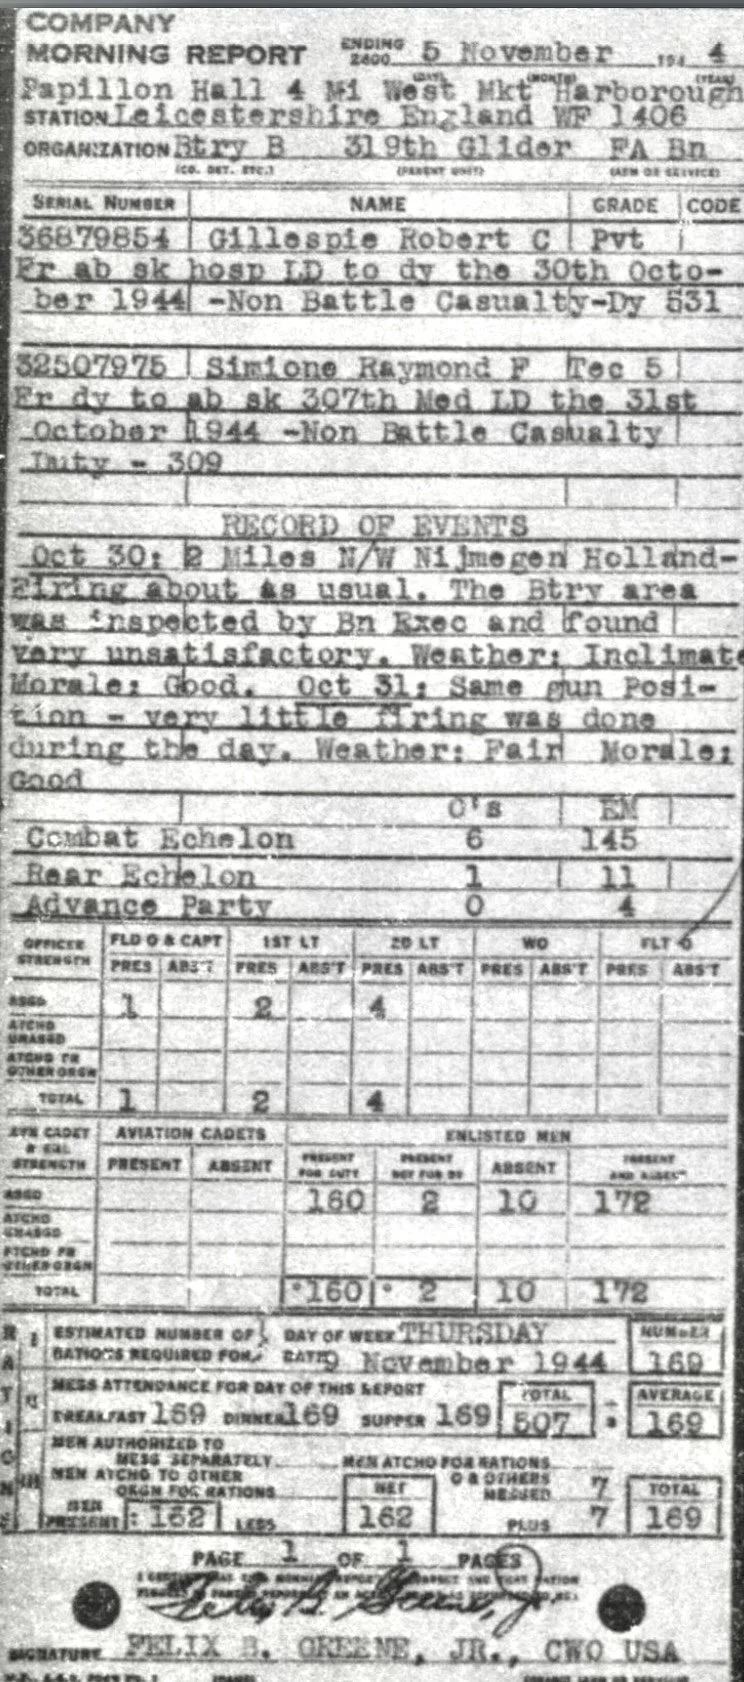 COMPANY
MORNING REPORT ENDING 2400 5 November 194 4
Papillon Hall 4 Mi West Mkt Harborough
STATION Leicestershire England WF 1406
ORGANIZATION Btry B 319th Glider FA Bn
(CO. DET. ETC.) (PARENT UNIT) (ARM OR SERVICE)
SERIAL NUMBER NAME GRADE CODE
36879854 Gillespie Robert C Pvt
Fr ab sk hosp LD to dy the 30th Octo-
ber 1944 -Non Battle Casualty-Dy 531
32507975 Simione Raymond F Tec 5
Fr dy to ab sk 307th Med LD the 31st
October 1944 -Non Battle Casualty
Duty - 309
RECORD OF EVENTS
Oct 30: 2 Miles N/W Nijmegen Holland-
Firing about as usual. The Btry area
was inspected by Bn Exec and found
very unsatisfactory. Weather: Inclimate
Morale: Good. Oct 31: Same gun Posi-
tion - very little firing was done
during the day. Weather: Fair Morale:
Good
O's EM
Combat Echelon 6 145
Rear Echelon 1 11
Advance Party 0 4
OFFICER STRENGTH FLD O & CAPT 1ST LT 2D LT WO FLT O
PRES ABS'T PRES ABS'T PRES ABS'T PRES ABS'T PRES ABS'T
ASGD 1 2 4
ATCHD UNASGD
ATCHD FR OTHER ORGN
TOTAL 1 2 4
AVN CADET & EM STRENGTH AVIATION CADETS ENLISTED MEN
PRESENT ABSENT PRESENT FOR DUTY PRESENT NOT FOR DY ABSENT PRESENT AND ABSENT
ASGD 160 2 10 172
ATCHD UNASGD
ATCHD FR OTHER ORGN
TOTAL 160 2 10 172
RATIONS
I ESTIMATED NUMBER OF RATIONS REQUIRED FOR DAY OF WEEK THURSDAY NUMBER
DATE 9 November 1944 169
II MESS ATTENDANCE FOR DAY OF THIS REPORT TOTAL AVERAGE
BREAKFAST 169 DINNER 169 SUPPER 169 507 169
III MEN AUTHORIZED TO MESS SEPARATELY MEN ATCHD FOR RATIONS
MEN ATCHD TO OTHER ORGN FOR RATIONS NET O & OTHERS MESSED 7 TOTAL
MEN PRESENT: 162 LESS 162 PLUS 7 169
PAGE 1 OF 1 PAGES
Felix B. Greene, Jr.
SIGNATURE FELIX B. GREENE, JR., CWO USA